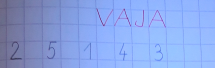 VAJA
2 5 1 4 3